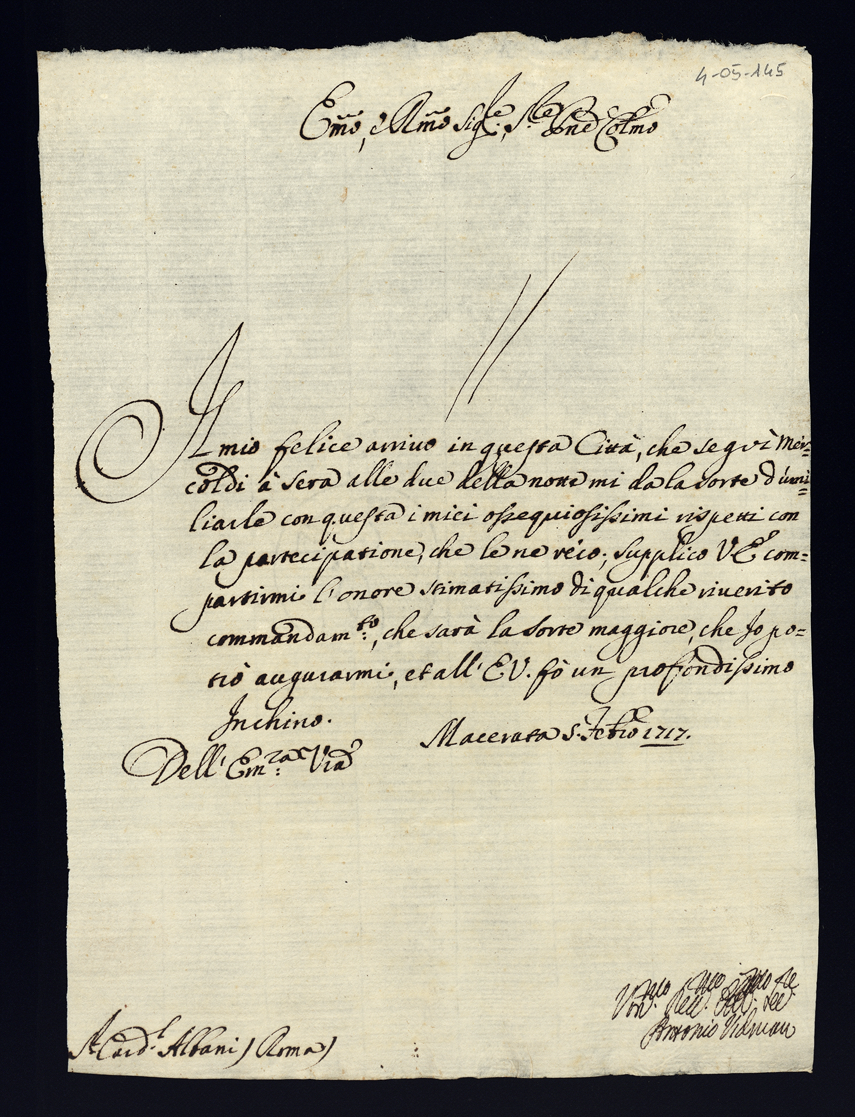 4-05-145
Emo, e Rmo Sig.re, Sig.re e Pne Colmo
Il mio felice arrivo in questa Città, che seguì Mer-
coldi à sera alle due della notte mi da la sorte d'umi-
liarle con questa i miei ossequiosissimi rispetti con
la partecipatione, che le ne reco; supplico V E com-
partirmi l'onore stimatissimo di qualche riverito
commandam.to, che sarà la sorte maggiore, che Io po-
trò augurarmi, et all' E V. fò un profondissimo
Inchino.
Macerata 5 Febro 1717.
Dell' Em.za Vra
Antonio Vidman
Sr Card.l Albani) Roma)